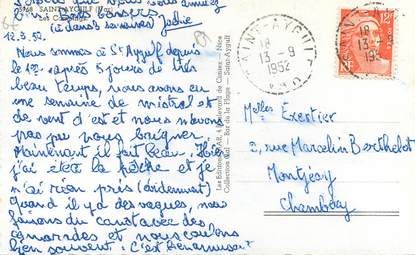 ST-AYGULF (Var)
12.9.52.
Nous sommes à St Aygulf depuis
le 1er après 5 jours de très
beau temps, nous avons eu
une semaine de mistral et
de vent d'est et nous n'avons
pas pu nous baigner.
Maintenant il fait beau. Hier
j'ai été à la pêche et je
n'ai rien pris (évidemment)
Quand il y a des vagues, nous
faisons du canot avec des
camarades et nous coulons
bien souvent. C'est
Collection Gal - Bar de la Plage - Saint-Aygulf
SAINT-AYGULF
18
13 - 9
1952
VAR
12F
Melles Exertier
2, rue Marcelin Berthelot
Montjésy
Chambéry